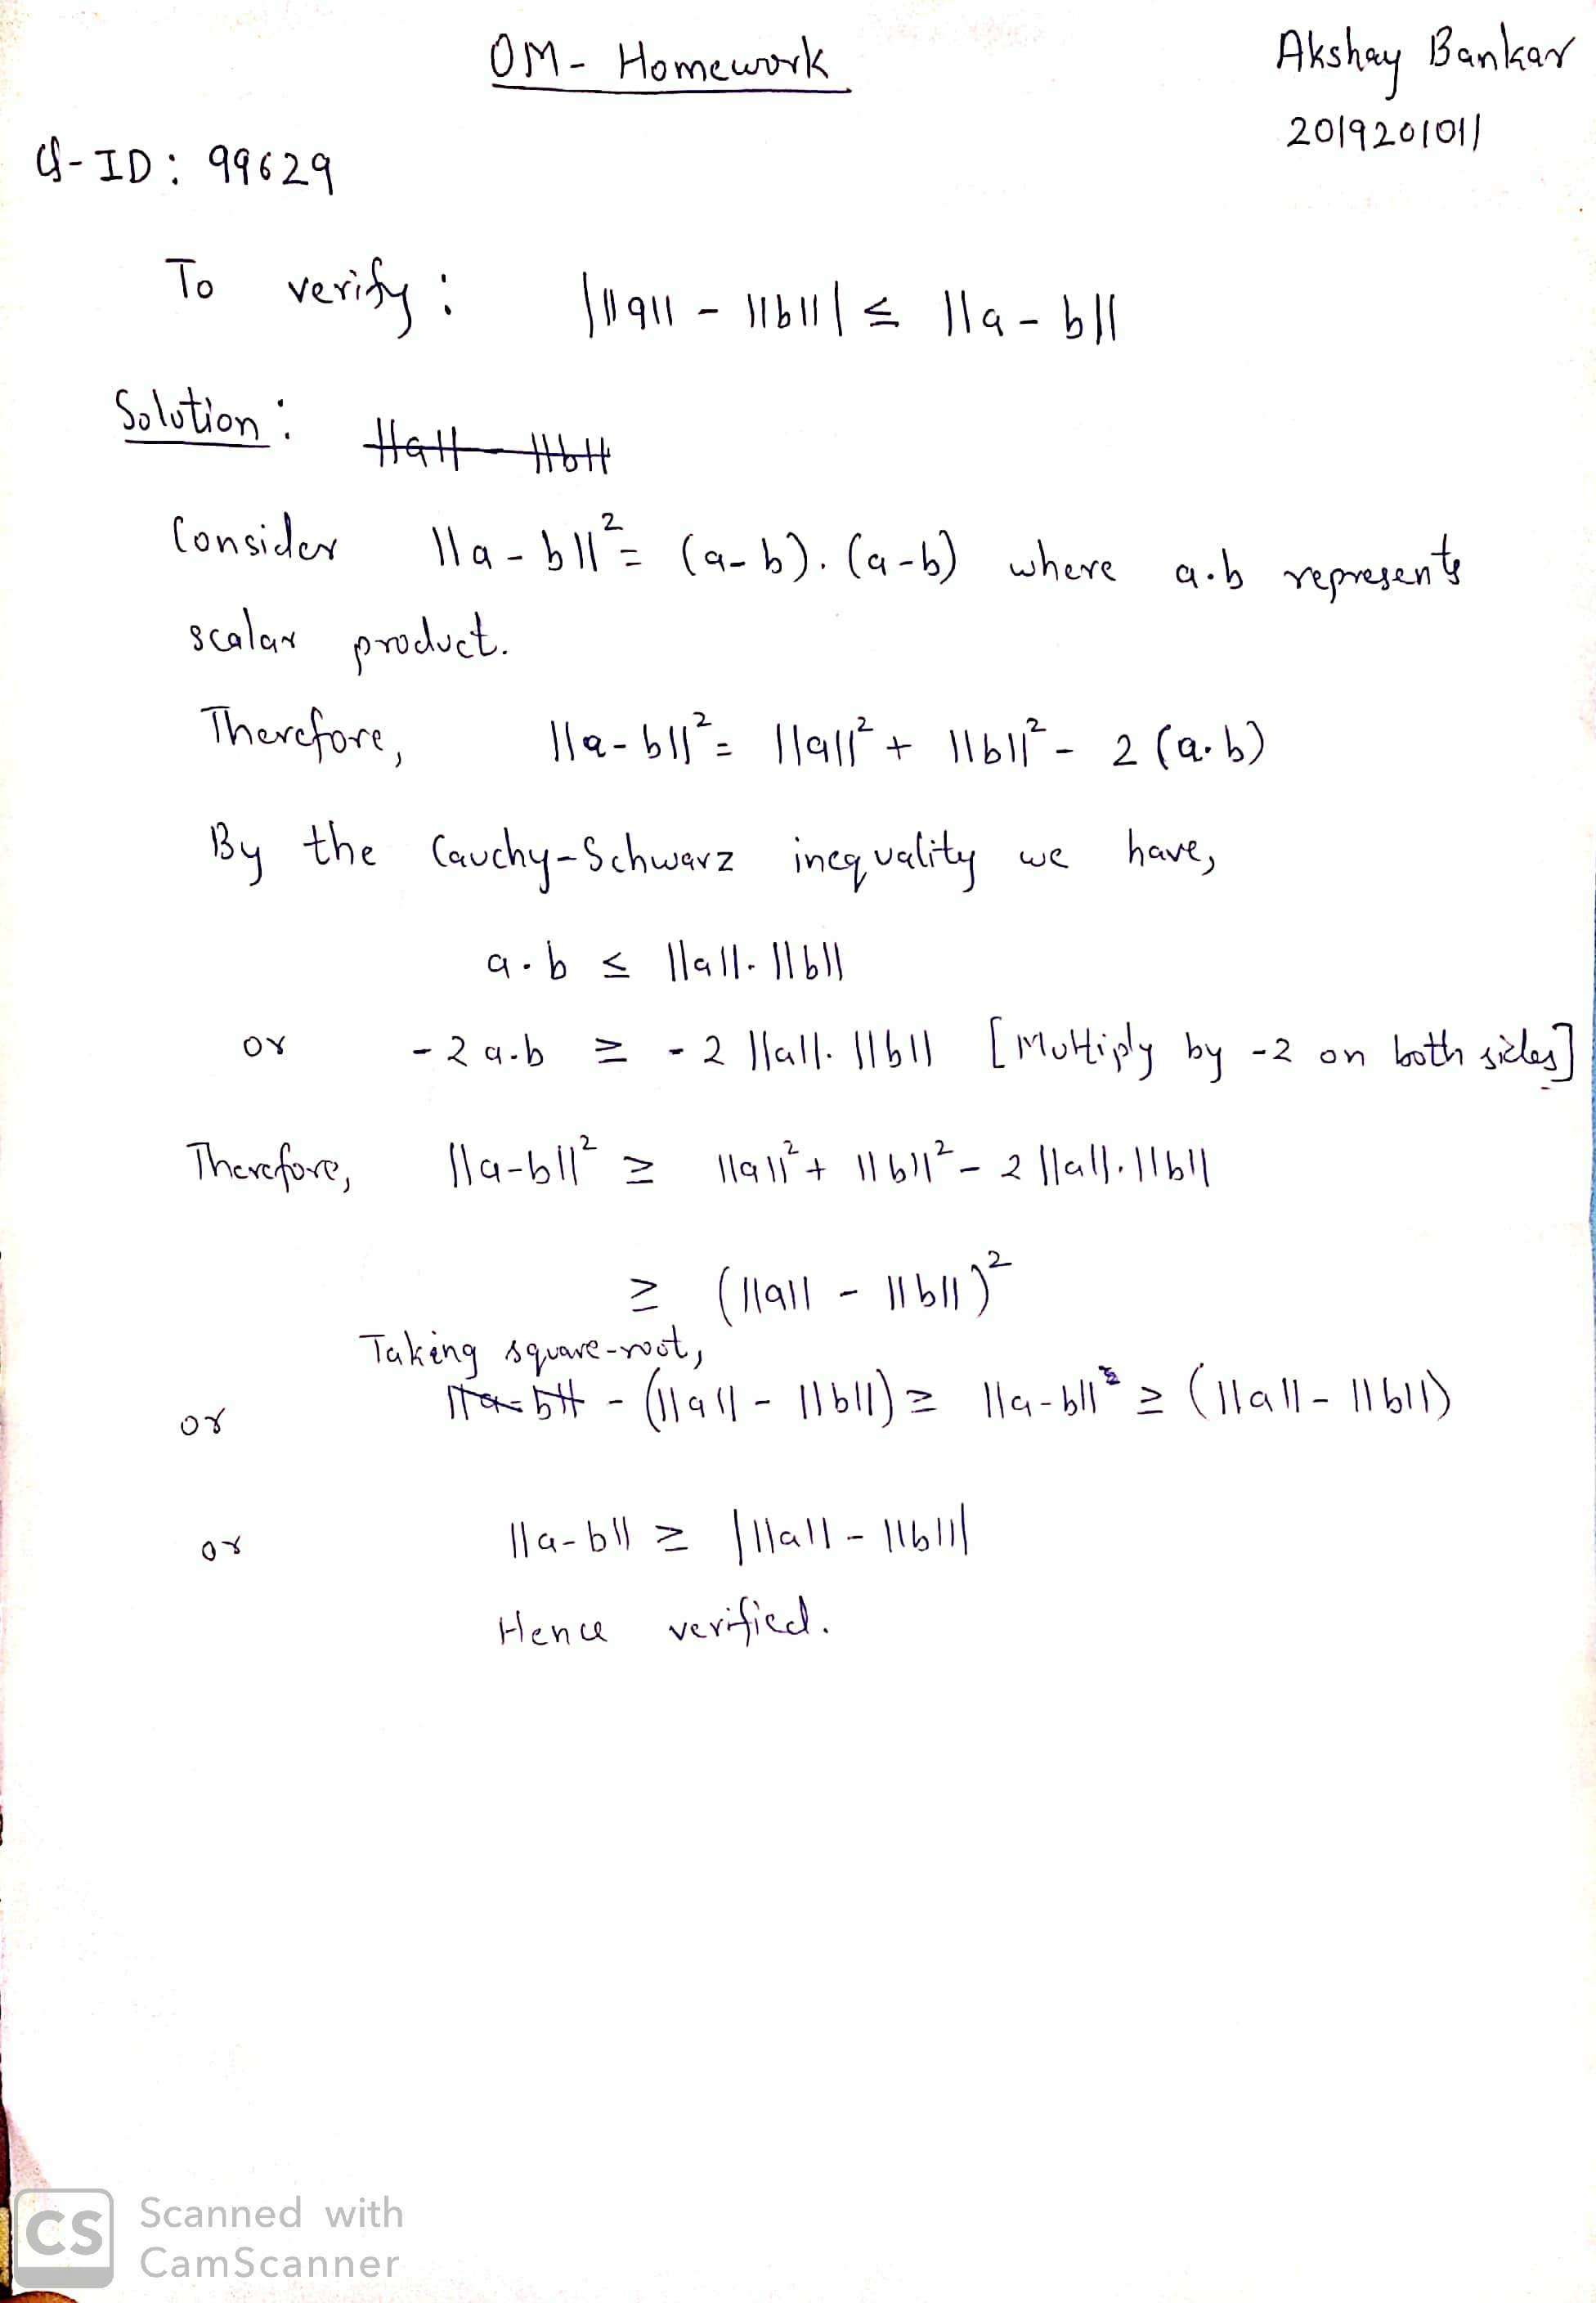 OM - Homework
Akshay Bankar
2019201011
Q-ID: 99629
To verify: |||a|| - ||b||| ≤ ||a - b||
Solution: ||a|| - ||b||
Consider ||a - b||² = (a - b). (a - b) where a.b represents
scalar product.
Therefore, ||a - b||² = ||a||² + ||b||² - 2 (a.b)
By the Cauchy-Schwarz inequality we have,
a.b ≤ ||a||. ||b||
or - 2 a.b ≥ - 2 ||a||. ||b|| [Multiply by -2 on both sides]
Therefore, ||a-b||² ≥ ||a||² + ||b||² - 2 ||a||. ||b||
≥ (||a|| - ||b||)²
Taking square-root,
or ||a-b|| - (||a|| - ||b||) ≥ ||a-b|| ≥ (||a|| - ||b||)
or ||a-b|| ≥ |||a|| - ||b|||
Hence verified.
CS Scanned with
CamScanner